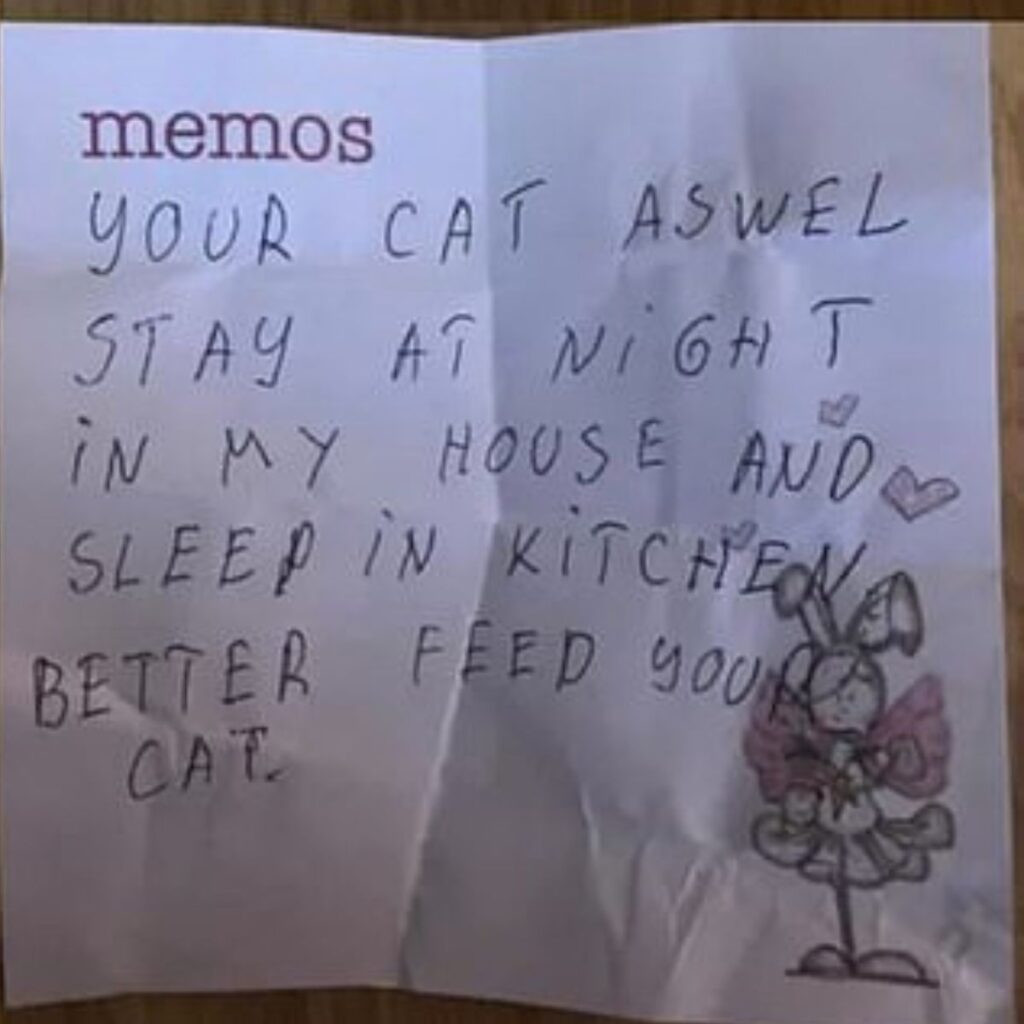 memos
YOUR CAT ASWEL
STAY AT NiGHT
iN MY HOUSE AND
SLEEP iN KiTCHEN
BETTER FEED YOUR
CAT.